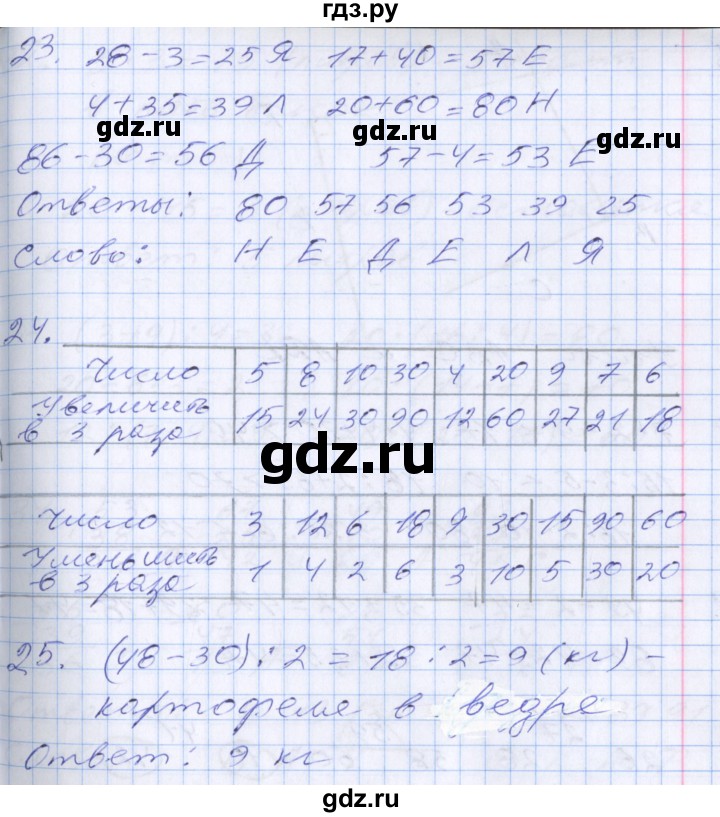 гдз.ру
23. 28-3=25 Я 17+40=57 Е
4+35=39 Л 20+60=80 Н
gdz.ru gdz.ru gdz.ru
86-30=56 Д 57-4=53 Е
Ответы: 80 57 56 53 39 25
Слово: Н Е Д Е Л Я
24.
Число 5 8 10 30 4 20 9 7 6
Увеличить в 3 раза 15 24 30 90 12 60 27 21 18
gdz.ru
Число 3 12 6 18 9 30 15 90 60
Уменьшить в 3 раза 1 4 2 6 3 10 5 30 20
25. (48-30):2=18:2=9 (кг) -
картофеля в ведре
Ответ: 9 кг
gdz.ru gdz.ru
gdz.ru